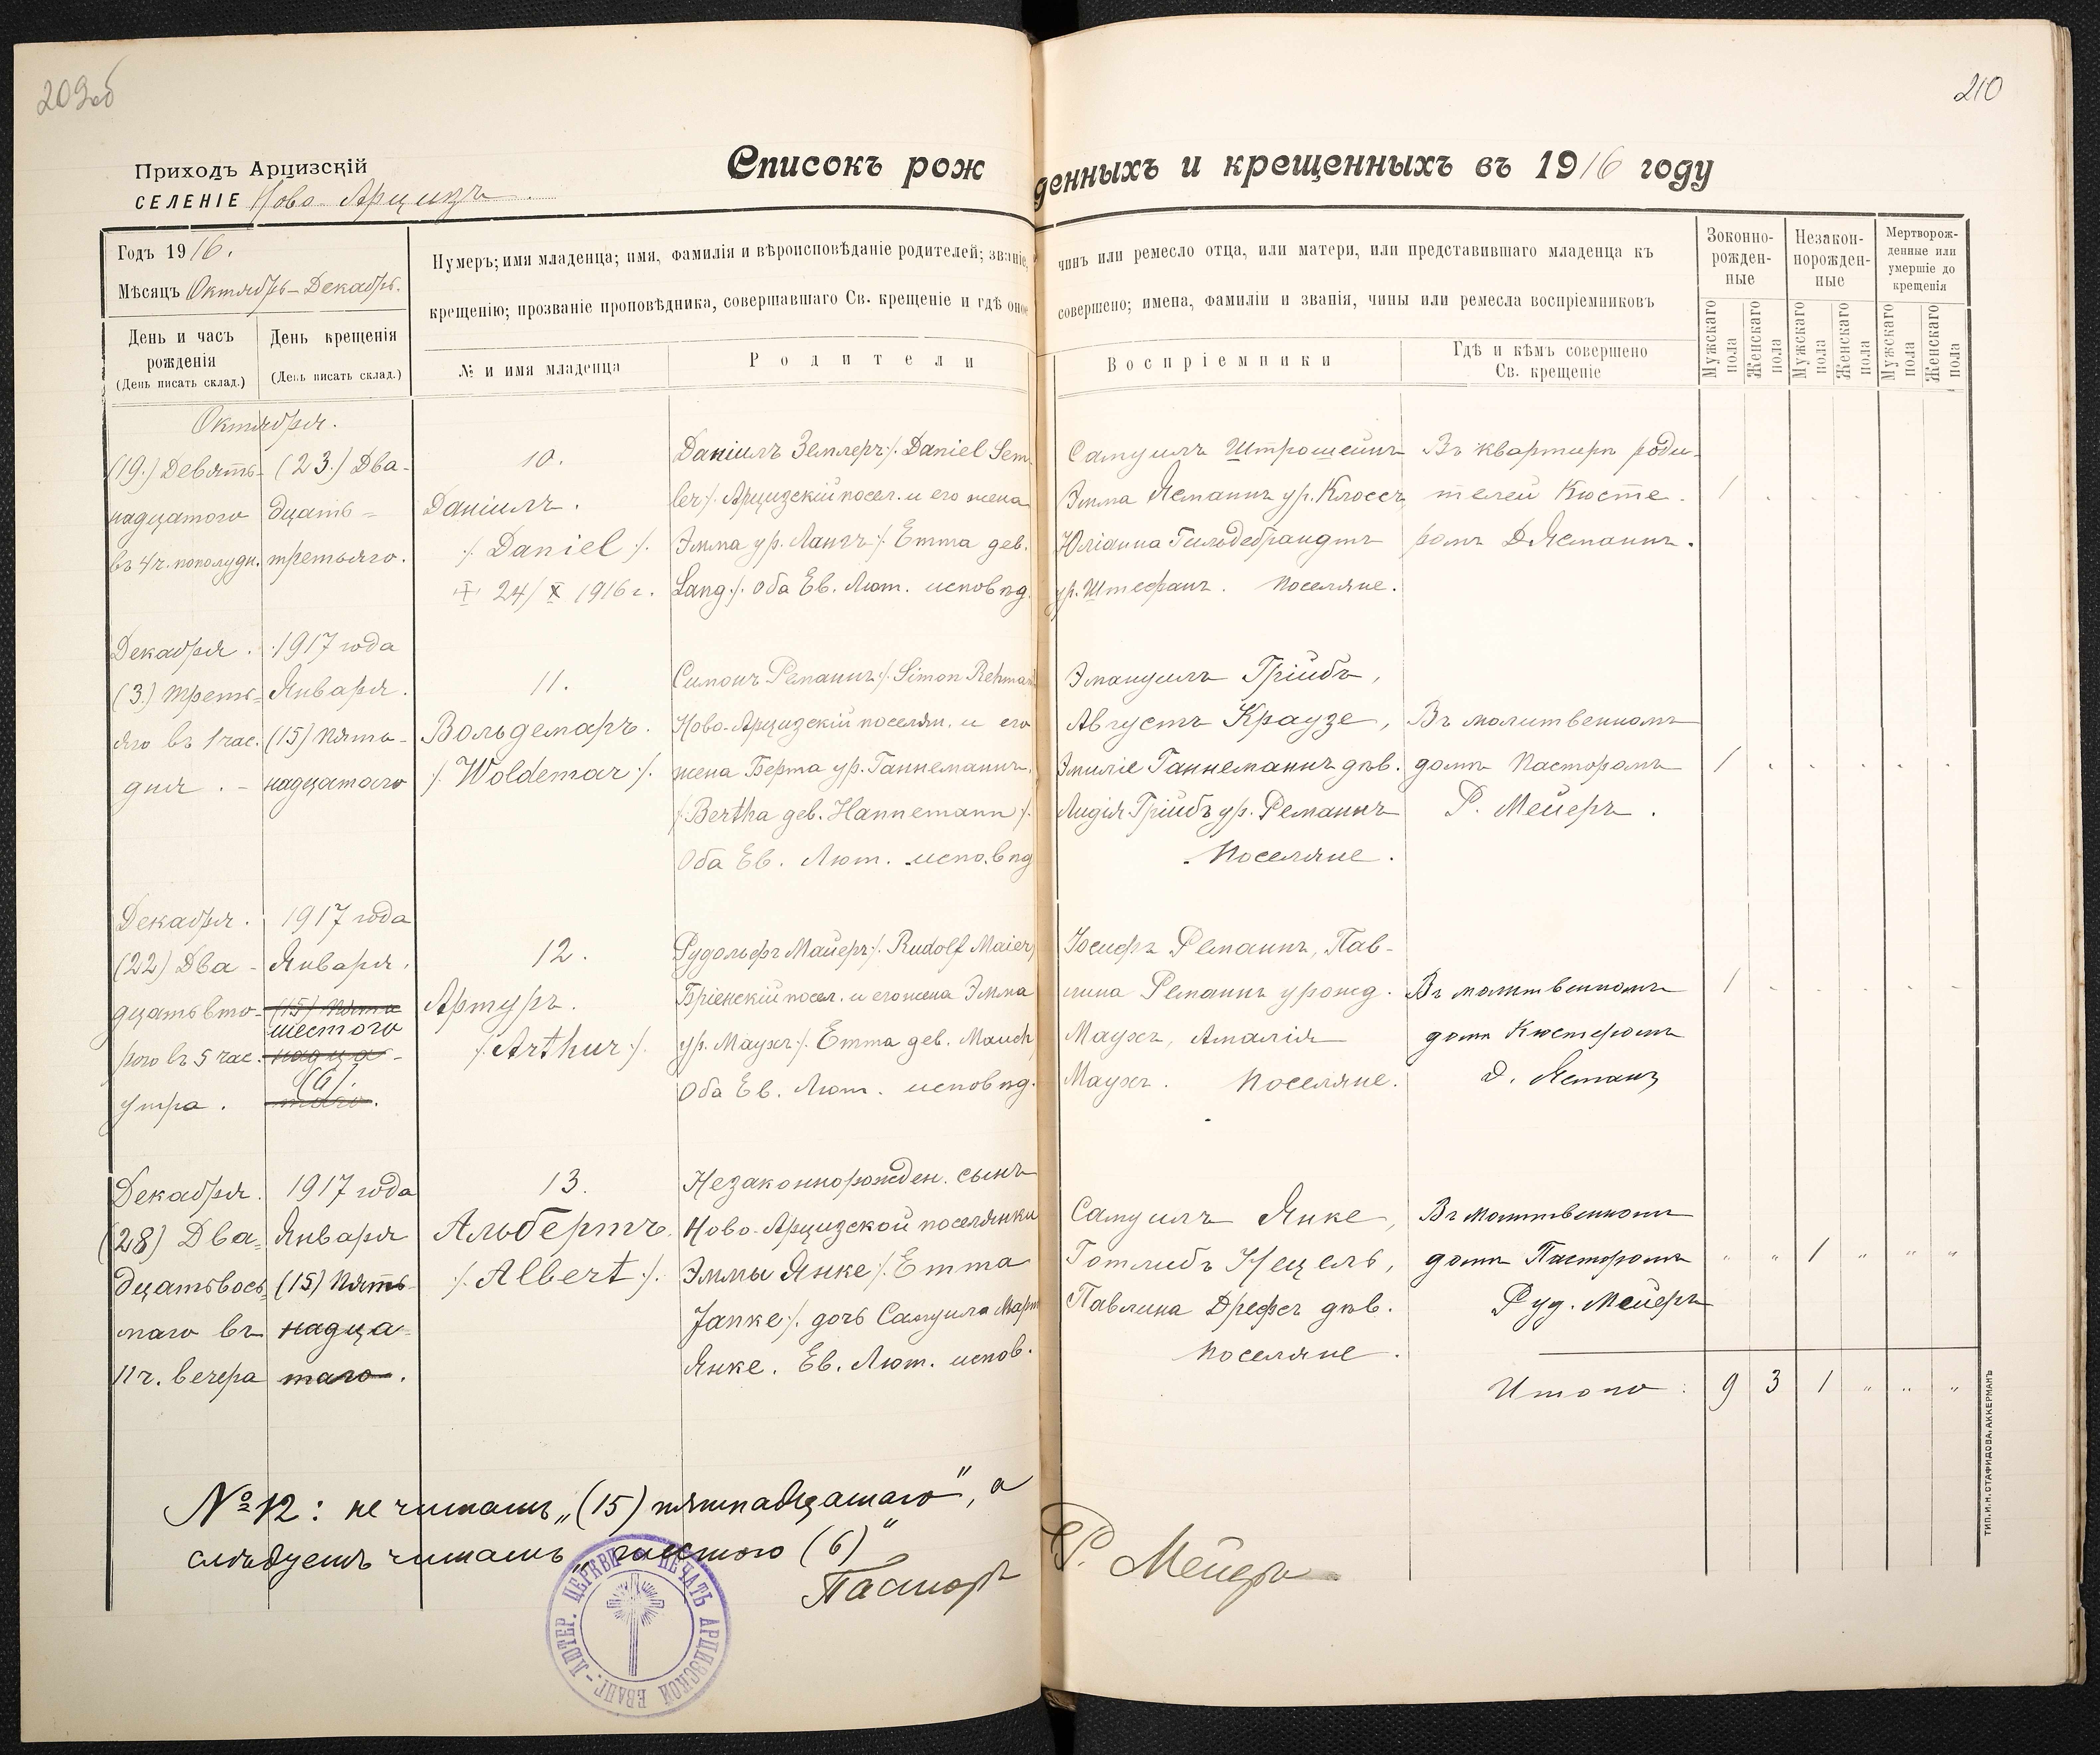 209об
210
Приходъ Арцизскій
СЕЛЕНІЕ Ново Арцизъ.
Списокъ рожденныхъ и крещенныхъ въ 1916 году
Годъ 1916.
Мѣсяцъ Октябрь-Декабрь.
День и часъ рожденія
(День писать склад.)
День крещенія
(День писать склад.)
Нумеръ; имя младенца; имя, фамилія и вѣроисповѣданіе родителей; званіе, чинъ или ремесло отца, или матери, или представившаго младенца къ
крещенію; прозваніе проповѣдника, совершавшаго Св. крещеніе и гдѣ оное совершено; имена, фамиліи и званія, чины или ремесла воспріемниковъ
№ и имя младенца
Родители
Воспріемники
Гдѣ и кѣмъ совершено
Св. крещеніе
Зоконно-
рожден-
ные
Незакон-
норожден-
ные
Мертворож-
денные или
умершіе до
крещенія
Мужскаго пола
Женскаго пола
Мужскаго пола
Женскаго пола
Мужскаго пола
Женскаго пола
Октября.
(19.) Девять-
надцатого
въ 4 ч. пополудн.
(23.) Два-
дцать-
третьяго.
10.
Даніилъ.
/. Daniel ./.
24/X 1916 г.
Даніилъ Земмлеръ /. Daniel Sem-
ler /. Арцизскій посел. и его жена
Эмма ур. Лангъ /. Emma geb.
Lang ./. Оба Ев. Лют. исповѣд.
Самуилъ Штрошейнъ
Эмма Яеманнъ ур. Клоссъ
Юліанна Гильдебрандтъ
ур. Штефанъ. Поселяне.
Въ квартирѣ роди-
телей Кюсте-
ромъ Д. Яеманнъ.
1
Декабря.
(3.) Треть-
яго въ 1 час.
дня.
1917 года
Января.
(15) Пять-
надцатого
11.
Вольдемаръ.
/. Woldemar ./.
Симонъ Реманнъ /. Simon Rehmann
Ново-Арцизскій поселян. и его
жена Берта ур. Ганнеманнъ.
/. Bertha geb. Hannemann ./.
Оба Ев. Лют. исповѣд
Эмануилъ Грійбъ,
Августъ Краузе,
Эмиліе Ганнеманнъ дѣв.
Лидія Грійбъ ур. Реманнъ
Поселяне.
Въ молитвенномъ
домѣ Пасторомъ
Р. Мейеръ.
1
Декабря.
(22) Два-
дцать вто-
рого въ 5 час.
утра.
1917 года
Января.
(15) Пять
шестого
надца-
(6).
таго.
12.
Артуръ.
/. Arthur ./.
Рудольфъ Майеръ /. Rudolf Maier,
Бріенскій посел. и его жена Эмма
ур. Маухъ /. Emma geb. Mauch
Оба Ев. Лют. исповѣд.
Іосифъ Реманнъ, Пав-
лина Реманнъ урожд.
Маухъ, Амалія
Маухъ. Поселяне.
Въ молитвенномъ
домѣ Кюстеромъ
Д. Яеманъ
1
Декабря.
(28) Два-
дцать вось-
маго въ
11 ч. вечера
1917 года
Января
(15) Пять-
надца-
таго.
13.
Альбертъ.
/. Albert ./.
Незаконнорожден. сынъ
Ново-Арцизской поселянки
Эммы Янке /. Emma
Janke ./. дочь Самуила Март
Янке. Ев. Лют. испов.
Самуилъ Янке,
Готлибъ Нецель,
Павлина Дрефсъ дѣв.
Поселяне.
Въ молитвенномъ
домѣ Пасторомъ
Руд. Мейеръ
1
Итого: 9 3 1 " " "
№ 12: не читать „(15) пятнадцатаго", а
слѣдуетъ читать „шестого (6)"
Пасторъ Р. Мейеръ
ПЕЧАТЬ АРЦИЗСКОЙ ЕВАНГ.-ЛЮТЕР. ЦЕРКВИ
ТИП. И. Н. СТАФИДОВА, АККЕРМАНЪ